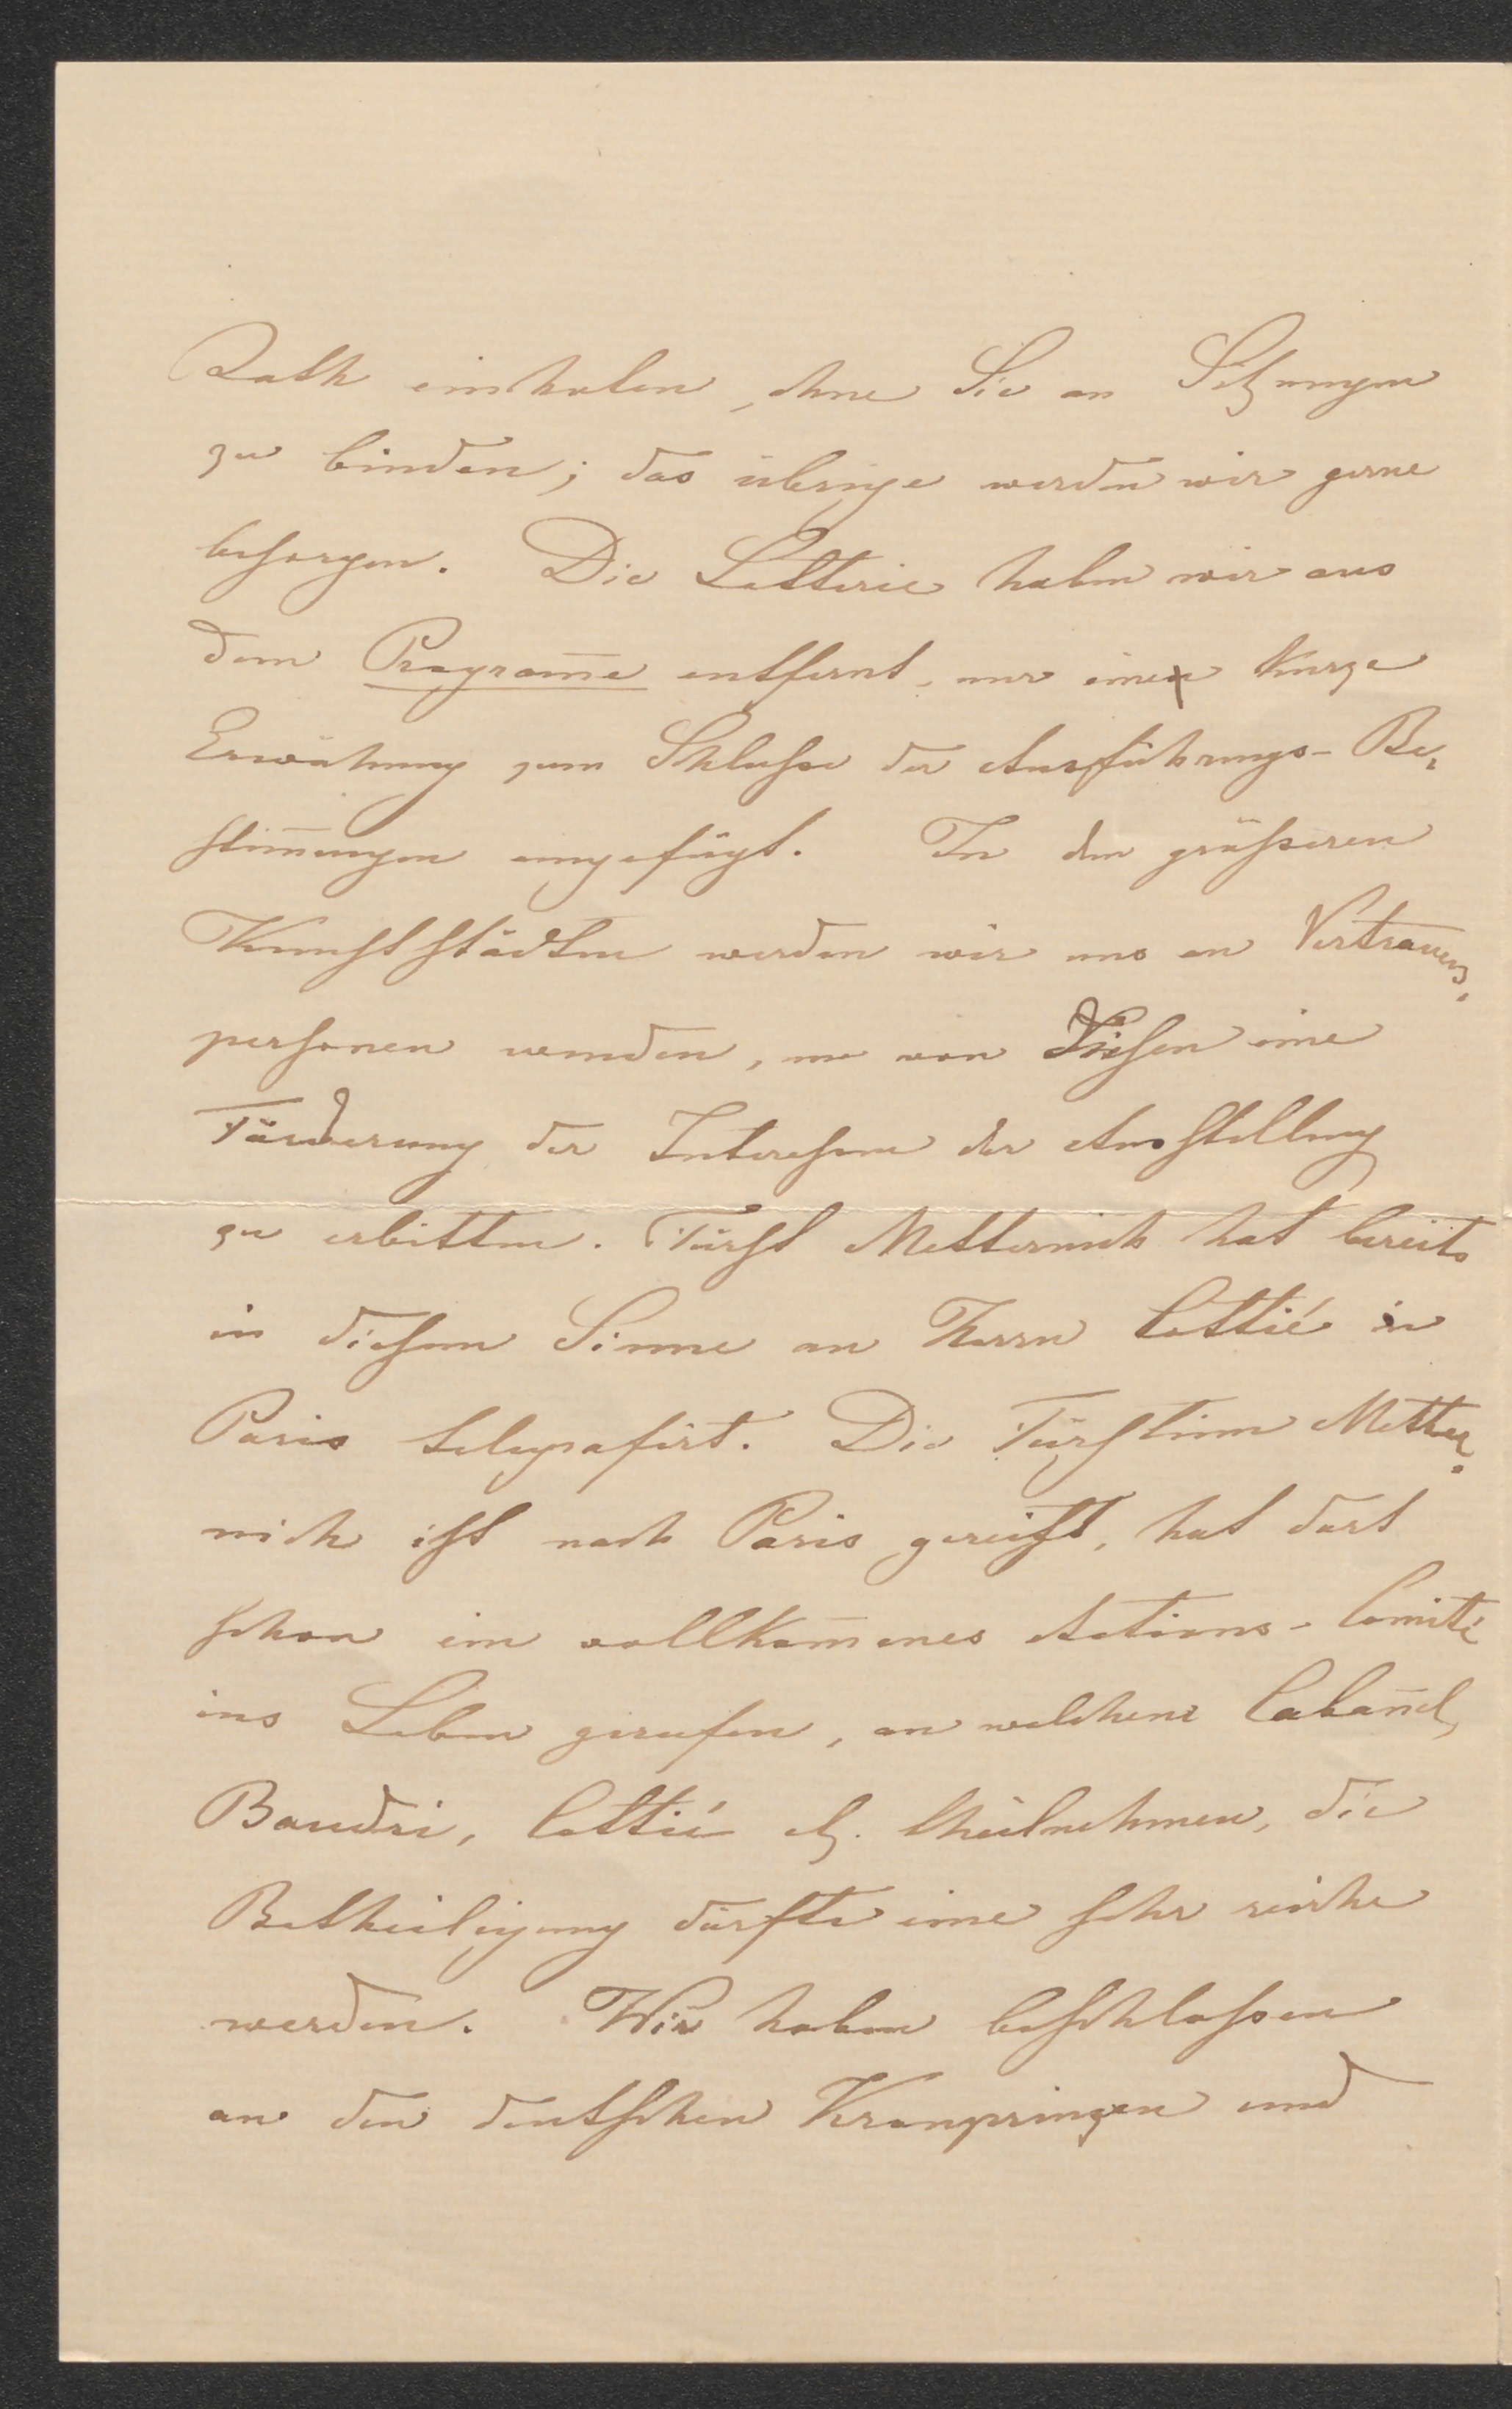 Rath einholen, ohne Sie an Sitzungen
zu binden; das übrige werden wir gerne
besorgen. Die Lotterie haben wir aus
dem Programm̄e entfernt, nur eine kurze
Erwähnung zum Schlusse der Ausführungs-Be-
stim̄ungen eingefügt. In den größeren
Kunststädten werden wir uns an Vertrauens-
personen wenden, um von Diesen eine
Förderung der Interessen der Ausstellung
zu erbitten. Fürst Metternich hat bereits
in diesem Sinne an Herrn Cottié in
Paris telegrafirt. Die Fürstinn Metter-
nich ist nach Paris gereist, hat dort
schon ein vollkom̄enes Actions-Comité
ins Leben gerufen, an welchem Caban̄el,
Baudri, Cottié etz. theilnehmen, die
Betheiligung dürfte eine sehr reiche
werden. Wir haben beschlossen
an den deutschen Kronprinzen und